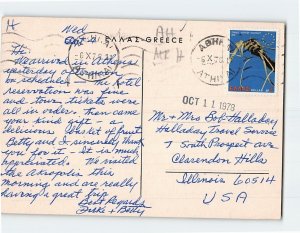 H
Wed
Oct 4
ΕΛΛΑΣ-GREECE
Hi -
We arrived in Athens
yesterday afternoon
on schedule. The hotel
reservation was fine
and town tickets were
all in order, then came
your kind gift - a
delicious basket of fruit.
Betty and I sincerely thank
you for it - it is much
appreciated. We visited
the Acropolis this
morning and are really
having a great trip
Best Regards
+ Betty
OCT 11 1978
Mr + Mrs Bob Halladay
Halladay Travel Service
7 South Prospect ave
Clarendon Hills
Illinois 60514
USA